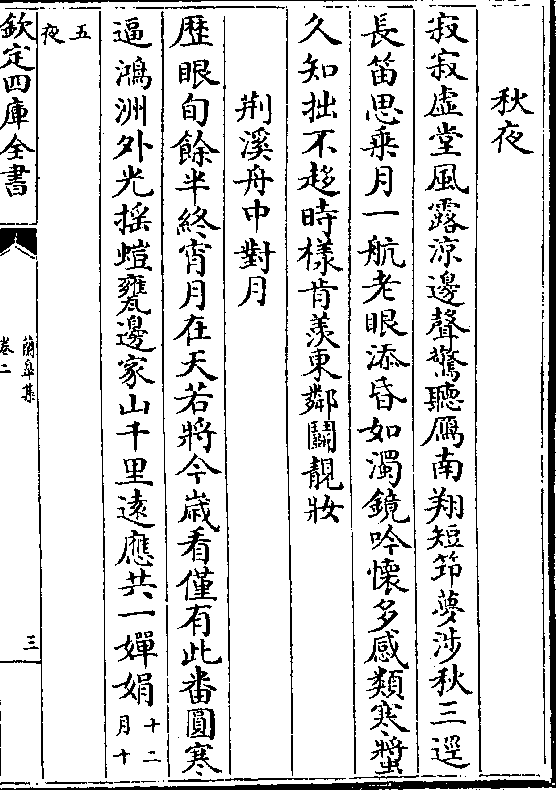 秋夜
寂寂虛堂風露涼邊聲驚聽鴈南翔短笻夢涉秋三逕
長笛思乗月一航老眼添昏如濁鏡吟懷多感類寒螿
久知拙不趍時様肯羨東鄰鬭靚妝
荆溪舟中對月
歴眼旬餘半終宵月在天若將今嵗看僅有此番圓寒
逼鴻洲外光揺螘甕邊家山千里逺應共一嬋娟十二
月十
五夜
欽定四庫全書
蘭臯集
卷二
三